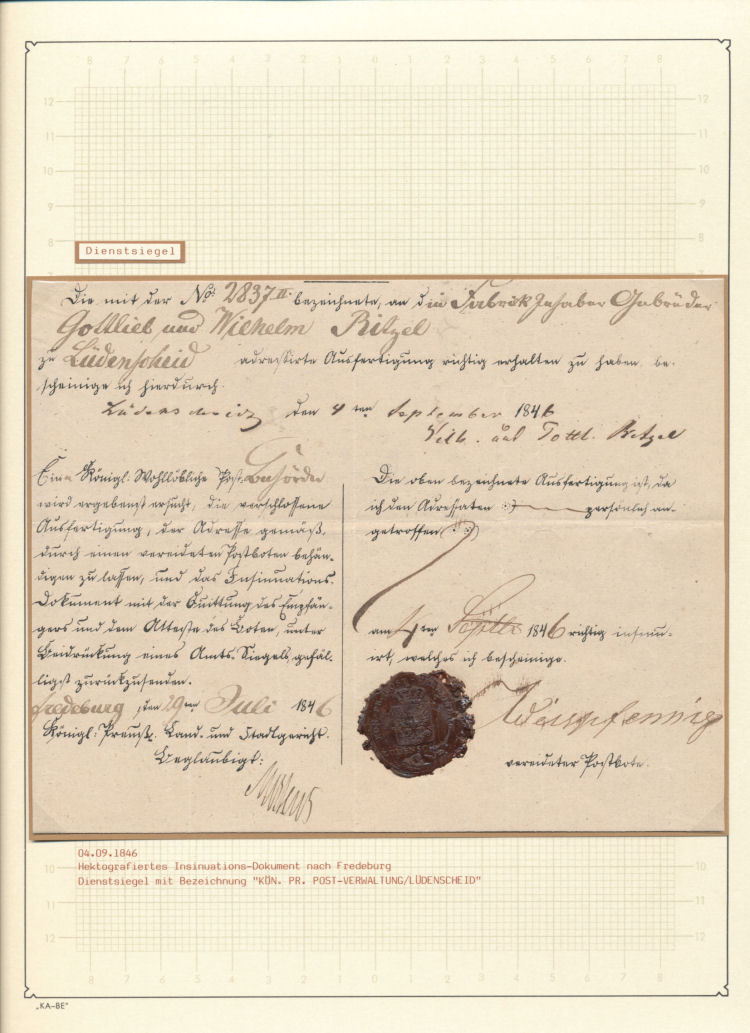 Dienstsiegel
Die mit der No. 2837 II. bezeichnete, an die Fabrik Inhaber Gebrüder
Gottlieb und Wilhelm Ritzel
zu Lüdenscheid adressirte Ausfertigung richtig erhalten zu haben, be-
scheinige ich hierdurch.
Lüdenscheid den 4 ten September 1846
Wilh. und Gottl. Ritzel
Eine Königl. Wohllöbliche Post-Behörde
wird ergebenst ersucht, die verschlossene
Ausfertigung, der Adresse gemäß,
durch einen vereideten Postboten behän-
digen zu lassen, und das Insinuations-
Dokument mit der Quittung des Empfän-
gers und dem Atteste des Boten, unter
Beidrückung eines Amts-Siegels, gefäl-
ligst zurückzusenden.
Fredeburg, den 29 ten Juli 1846
Königl. Preuß. Land- und Stadtgericht.
Beglaubigt:
Die oben bezeichnete Ausfertigung ist, da
ich den Adressaten persönlich an-
getroffen
am 4 ten 1846 richtig insinu-
irt, welches ich bescheinige.
Weispfennig
vereideter Postbote.
04.09.1846
Hektografiertes Insinuations-Dokument nach Fredeburg
Dienstsiegel mit Bezeichnung "KÖN. PR. POST-VERWALTUNG/LÜDENSCHEID"
„KA-BE"